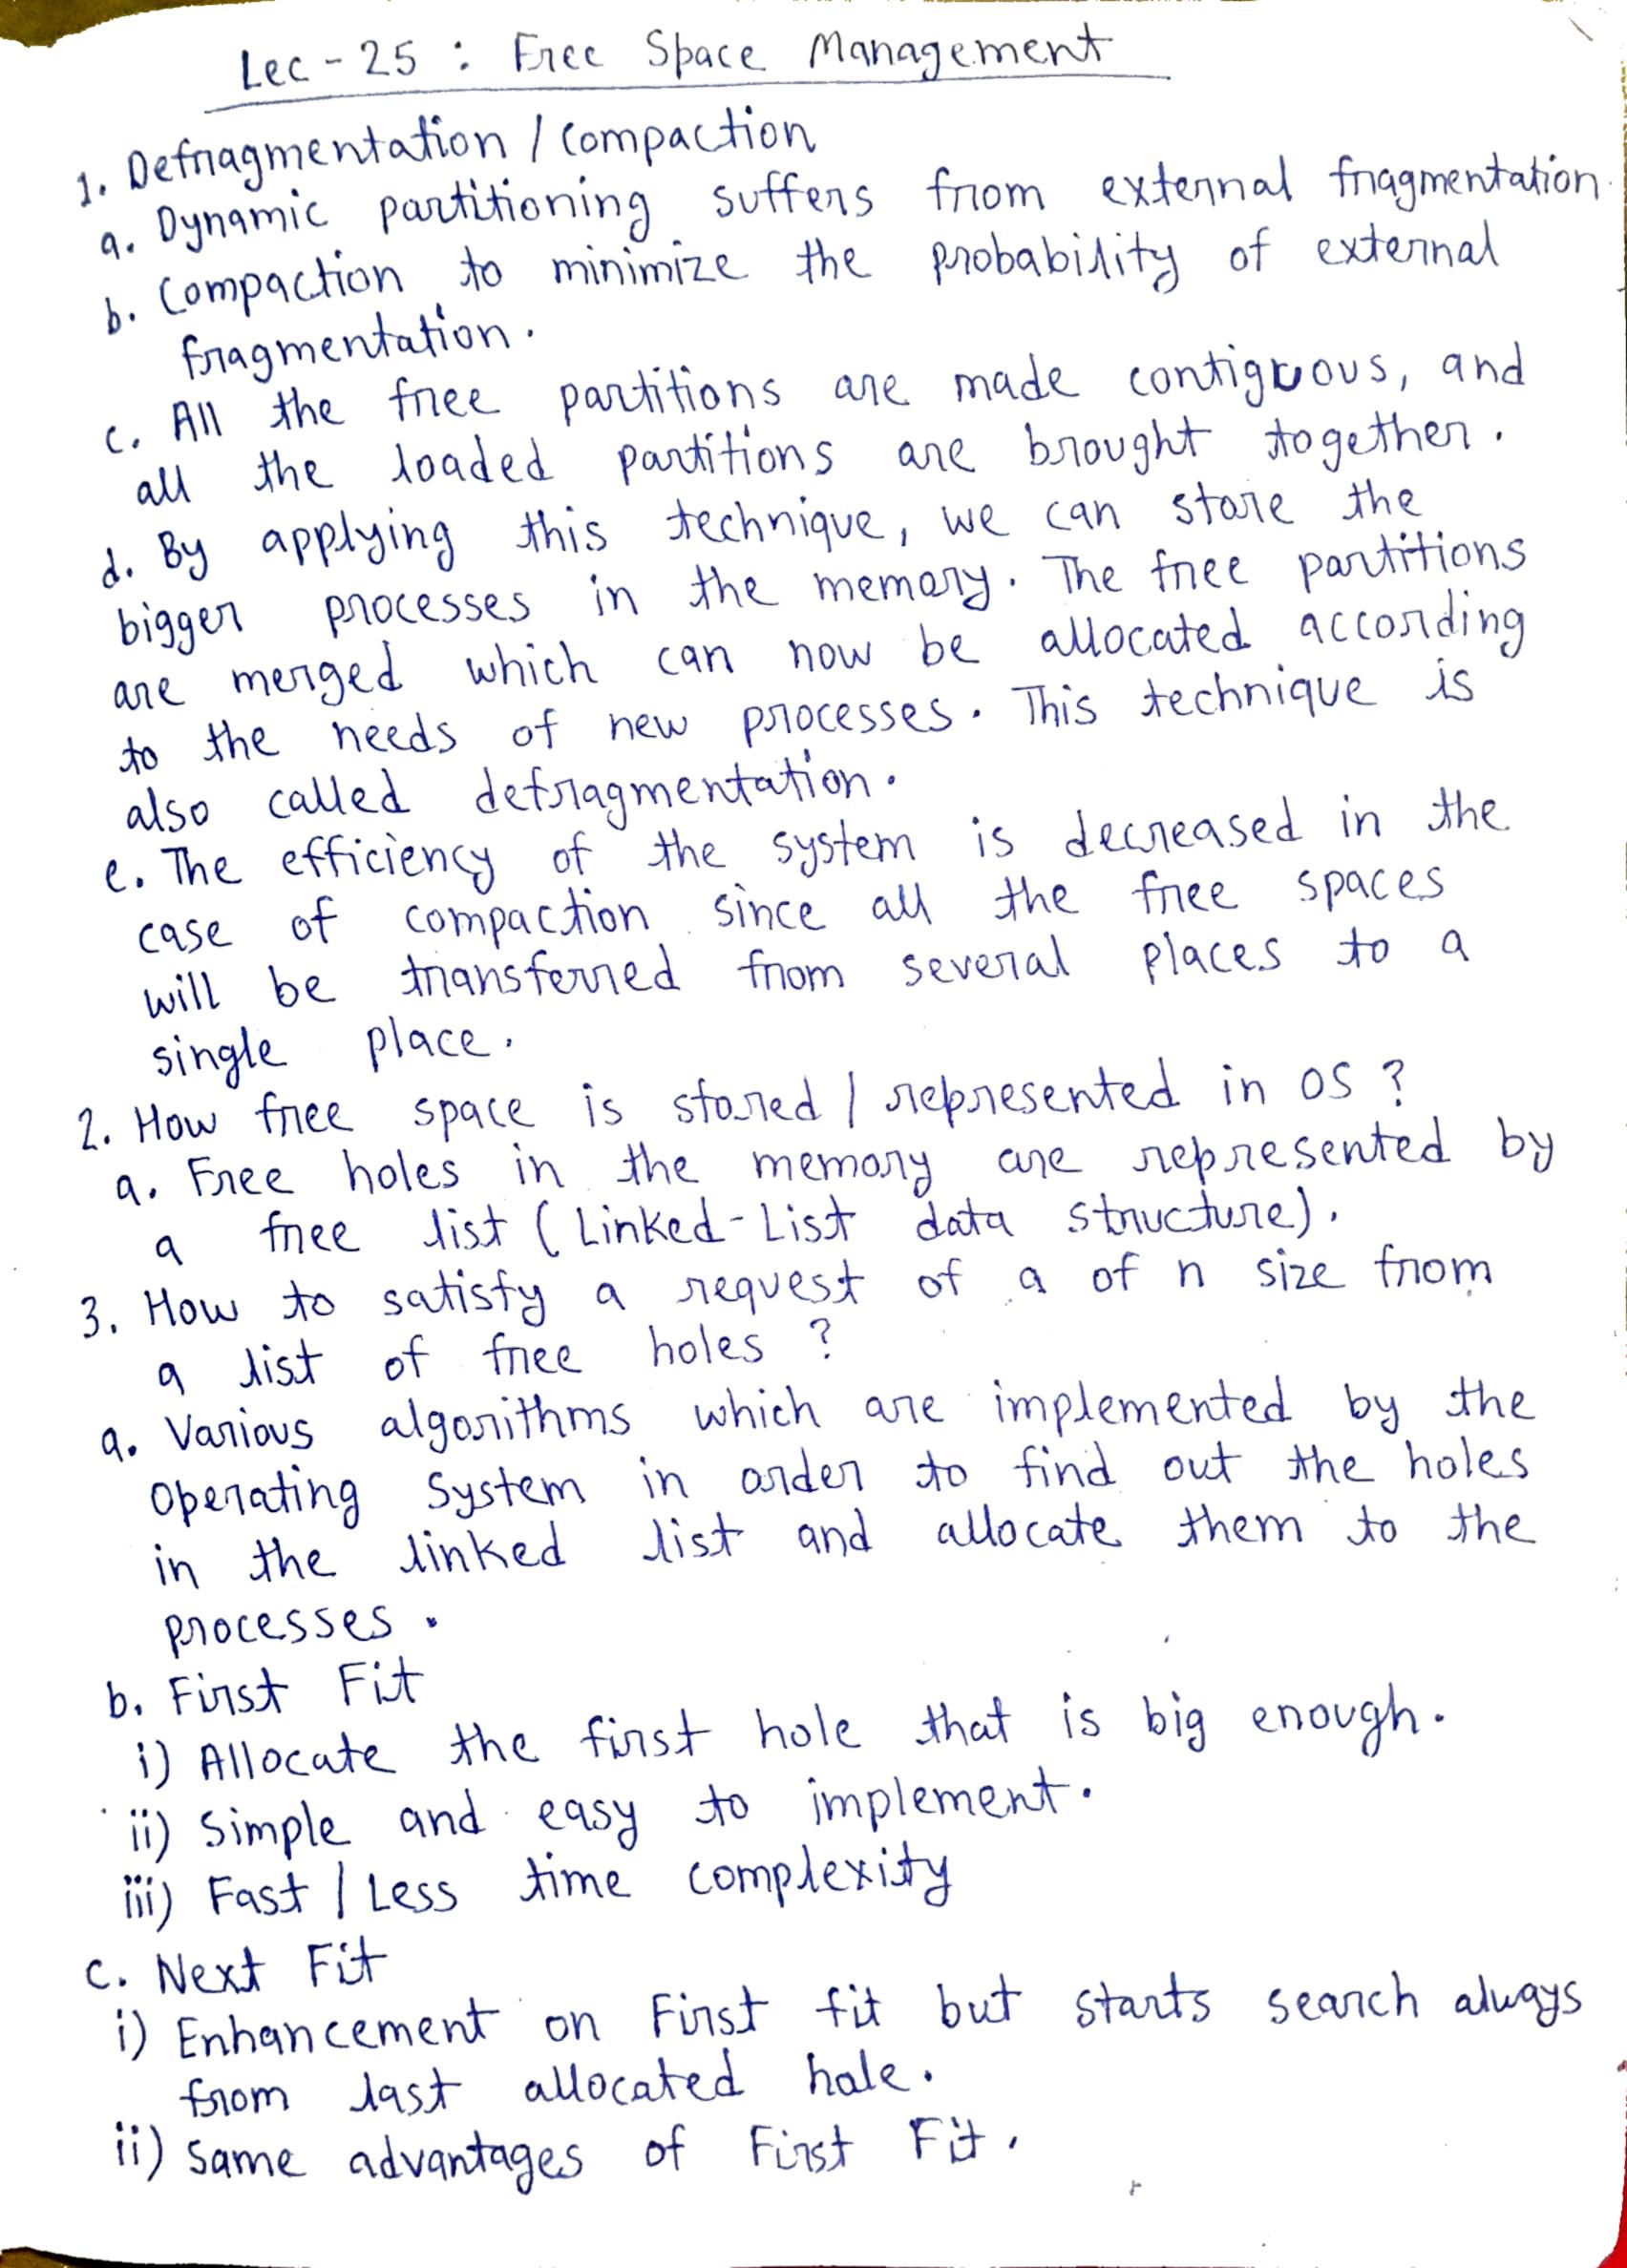 Lec-25 : Free Space Management
1. Defragmentation / Compaction
a. Dynamic partitioning suffers from external fragmentation.
b. Compaction to minimize the probability of external
fragmentation.
c. All the free partitions are made contiguous, and
all the loaded partitions are brought together.
d. By applying this technique, we can store the
bigger processes in the memory. The free partitions
are merged which can now be allocated according
to the needs of new processes. This technique is
also called defragmentation.
e. The efficiency of the system is decreased in the
case of compaction since all the free spaces
will be transferred from several places to a
single place.
2. How free space is stored / represented in OS ?
a. Free holes in the memory are represented by
a free list (Linked-List data structure).
3. How to satisfy a request of a of n size from
a list of free holes ?
a. Various algorithms which are implemented by the
Operating System in order to find out the holes
in the linked list and allocate them to the
processes.
b. First Fit
i) Allocate the first hole that is big enough.
ii) Simple and easy to implement.
iii) Fast / Less time complexity
c. Next Fit
i) Enhancement on First fit but starts search always
from last allocated hole.
ii) Same advantages of First Fit.